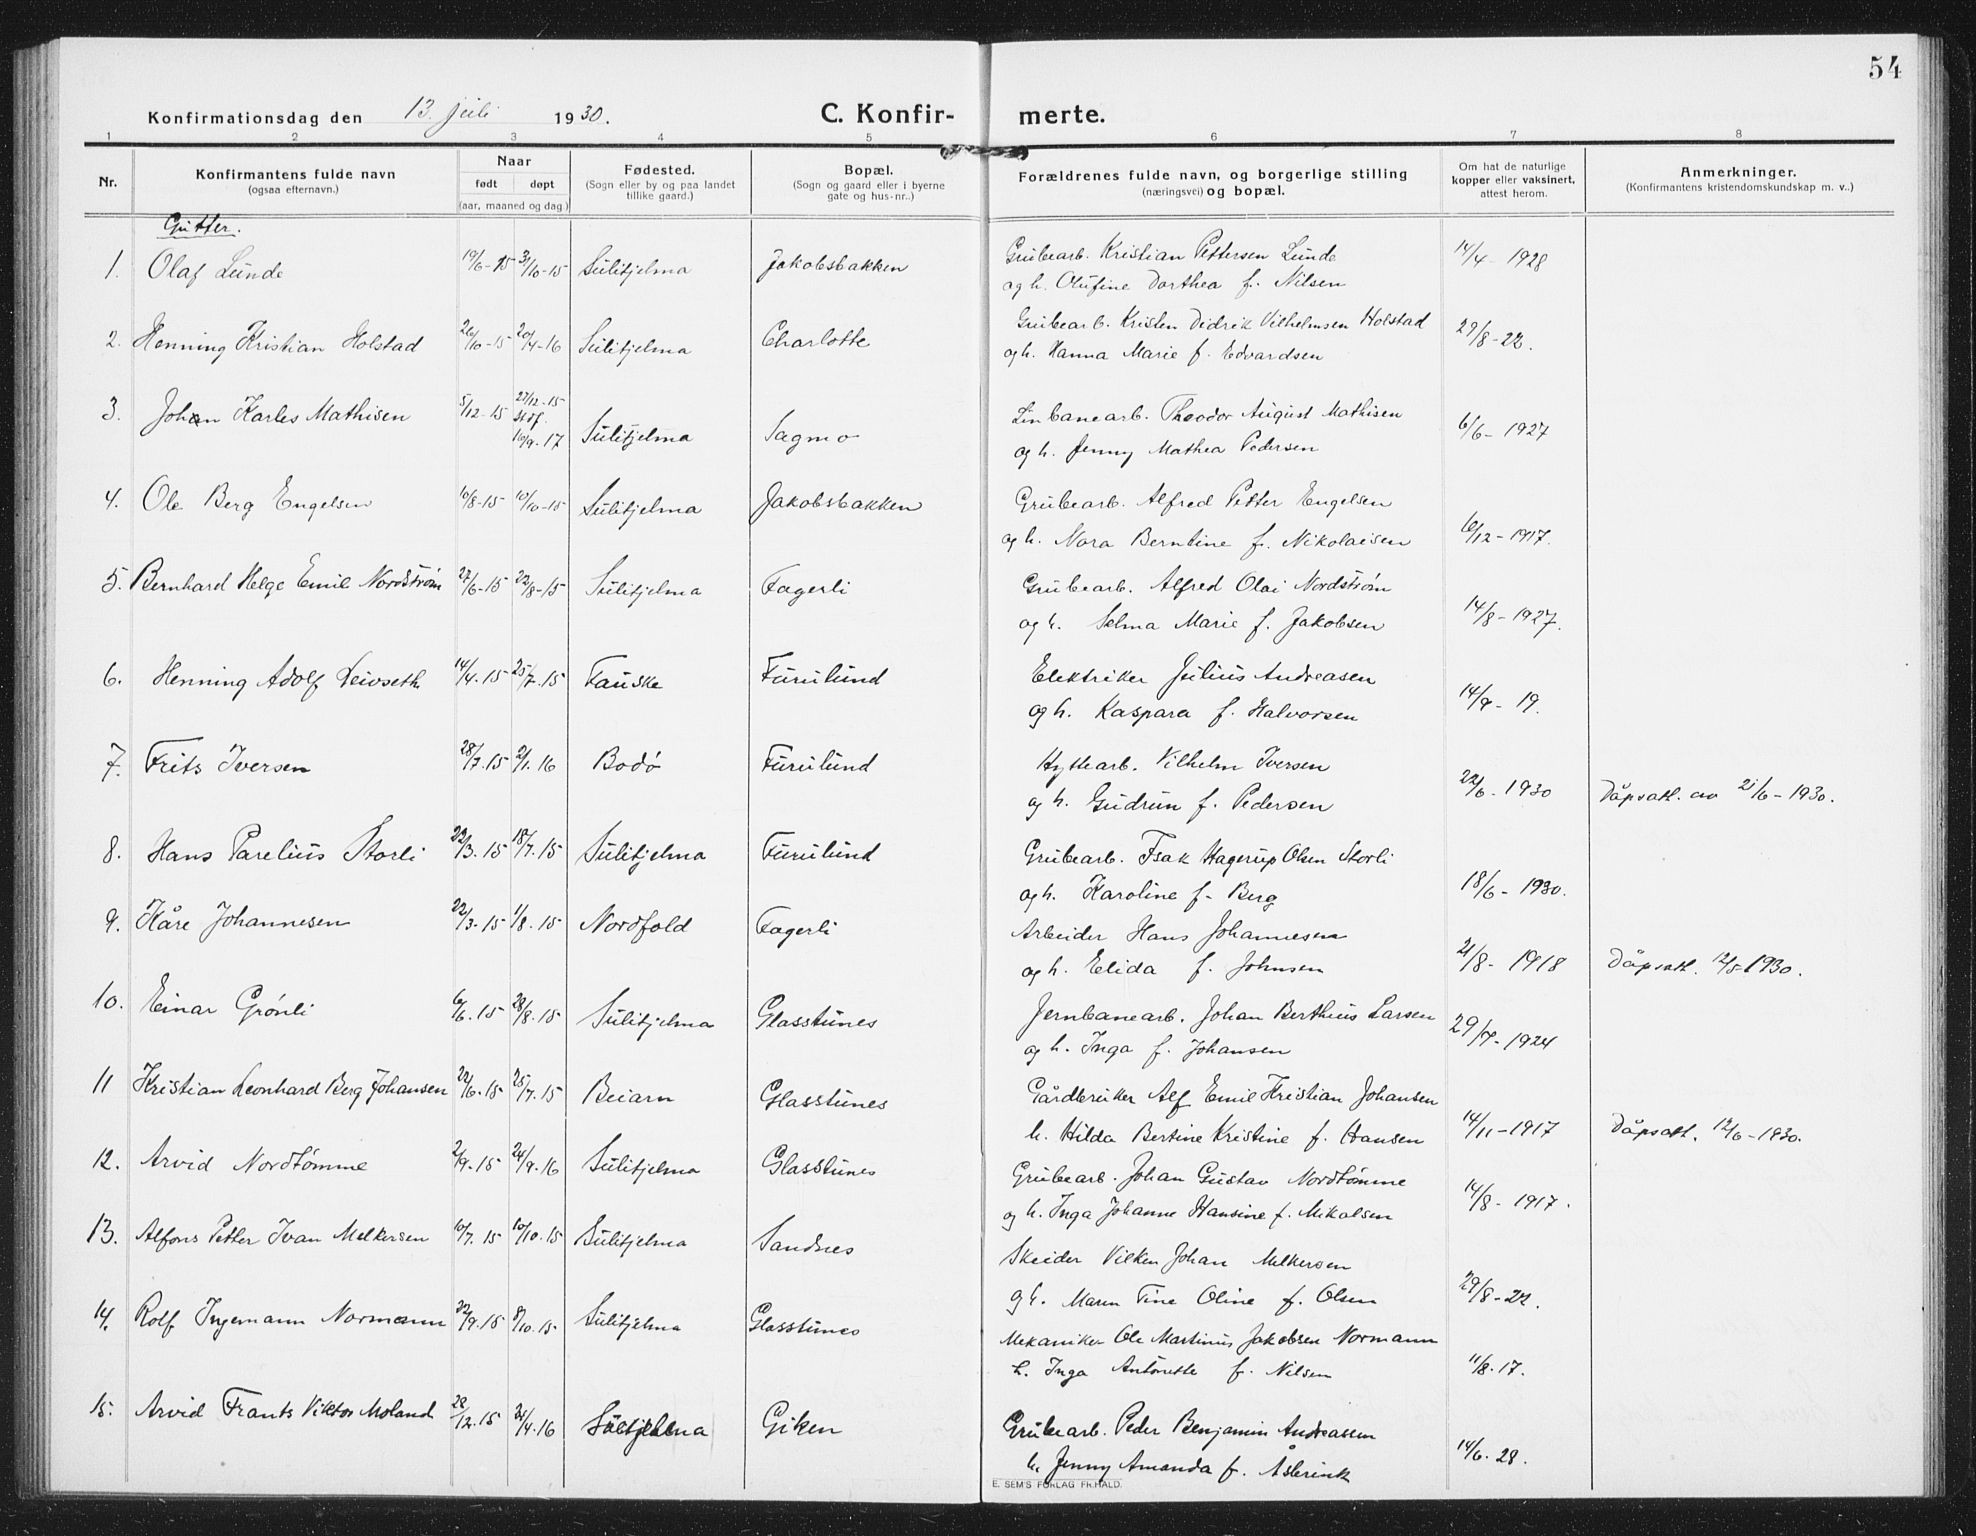 54
Konfirmationsdag den 13. juli 1930. C. Konfir- merte.
1 2 3 4 5 6 7 8
Nr. Konfirmantens fulde navn (ogsaa efternavn.) Naar født døpt (aar, maaned og dag.) Fødested. (Sogn eller by og paa landet tillike gaard.) Bopæl. (Sogn og gaard eller i byerne gate og hus-nr..) Forældrenes fulde navn, og borgerlige stilling (næringsvei) og bopæl. Om hat de naturlige kopper eller vaksinert, attest herom. Anmerkninger. (Konfirmantens kristendomskundskap m. v..)
Gutter.
1. Olaf Lunde 19/6-15 31/10-15 Sulitjelma Jakobsbakken Grubearb. Kristian Pettersen Lunde 14/4-1928
og h. Olufine Dorthea f. Nilsen
2. Henning Kristian Holstad 26/10-15 20/4-16 Sulitjelma Charlotte Grubearb. Kristen Didrik Vilhelmsen Holstad 29/8-22.
og h. Hanna Marie f. Edvardsen
3. Johan Karles Mathisen 5/12-15 27/12-15 Stdf. 16/9-17 Sulitjelma Sagmo Linbanearb. Theodor August Mathisen 6/6-1927
og h. Jenny Mathea Pedersen
4. Ole Berg Engelsen 10/8-15 10/10-15 Sulitjelma Jakobsbakken Grubearb. Alfred Petter Engelsen 6/12-1917.
og h. Nora Berntine f. Nikolaisen
5. Bernhard Helge Emil Nordstrøm 27/6-15 22/8-15 Sulitjelma Fagerli Grubearb. Alfred Olai Nordstrøm 14/8-1927.
og h. Selma Marie f. Jakobsen
6. Henning Adolf Leivseth 14/4.15 25/7.15 Fauske Furulund Elektriker Julius Andreasen 14/9-19.
og h. Kaspara f. Halvorsen
7. Frits Iversen 28/7.15 2/1.16 Bodø Furulund Hyttearb. Vilhelm Iversen 22/6-1930 Dåpsatt. av 21/6-1930.
og h. Gudrun f. Pedersen
8. Hans Parelius Storli 22/3.15 18/7.15 Sulitjelma Furulund Grubearb. Isak Hagerup Olsen Storli 18/6-1930.
og h. Karoline f. Berg
9. Kåre Johannesen 22/3.15 1/8.15 Nordfold Fagerli Arbeider Hans Johannesen 21/8-1918 Dåpsatt. 12/5-1930.
og h. Elida f. Johnsen
10. Einar Grønli 6/6.15 28/8.15 Sulitjelma Glasstunes Jernbanearb. Johan Berthius Larsen 29/7-1924
og h. Inga f. Johansen
11 Kristian Leonhard Berg Johansen 22/6.15 25/7.15 Beiarn Glasstunes Gårdbruker Alf Emil Kristian Johansen 14/11-1917 Dåpsatt. 12/6-1930.
h. Hilda Bertine Kristine f. Hansen
12. Arvid Nordtømme 2/9.15 24/9.16 Sulitjelma Glasstunes Grubearb. Johan Gustav Nordtømme 14/8-1917.
og h. Inga Johanne Hansine f. Mikalsen
13. Alfons Petter Ivan Melkersen 10/7.15 10/10.15 Sulitjelma Sandnes Skeider Vilken Johan Melkersen 29/8-22.
og h. Maren Tine Oline f. Olsen
14. Rolf Ingemann Normann 22/9.15 8/10.15 Sulitjelma Glasstunes Mekaniker Ole Martinus Jakobsen Normann 11/8.17.
h. Inga Antonette f. Nilsen
15. Arvid Frants Viktor Moland 28/12.15 24/4.16 Sulitjelma Giken Grubearb. Peder Benjamin Andreassen 14/6.28.
h. Jenny Amanda f. Åsbrink
E. SEM'S FORLAG FR.HALD.